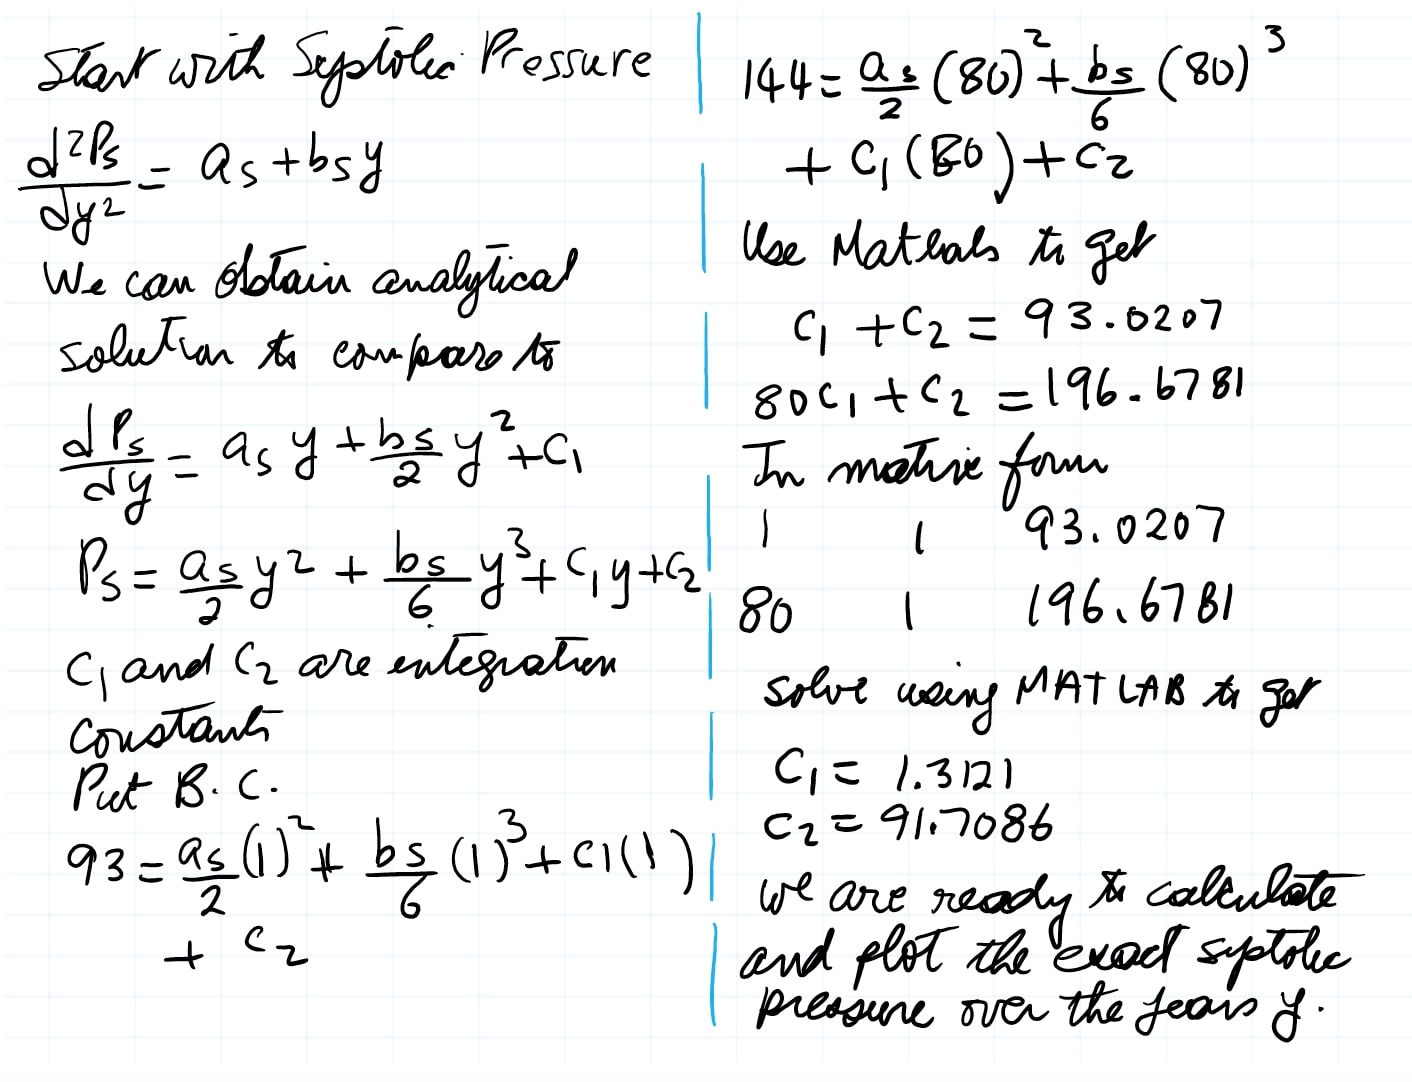 Start with Systolic Pressure
d²Ps/dy² = as + bsy
We can obtain analytical
solution to compare to
dPs/dy = as y + bs/2 y² + C1
Ps = as/2 y² + bs/6 y³ + C1y + C2
C1 and C2 are integration
constants
Put B.C.
93 = as/2 (1)² + bs/6 (1)³ + C1(1)
+ C2
144 = as/2 (80)² + bs/6 (80)³
+ C1(80) + C2
Use Matlab to get
C1 + C2 = 93.0207
80C1 + C2 = 196.6781
In matrix form
1 1 93.0207
80 1 196.6781
solve using MATLAB to get
C1 = 1.3121
C2 = 91.7086
we are ready to calculate
and plot the exact systolic
pressure over the years y.